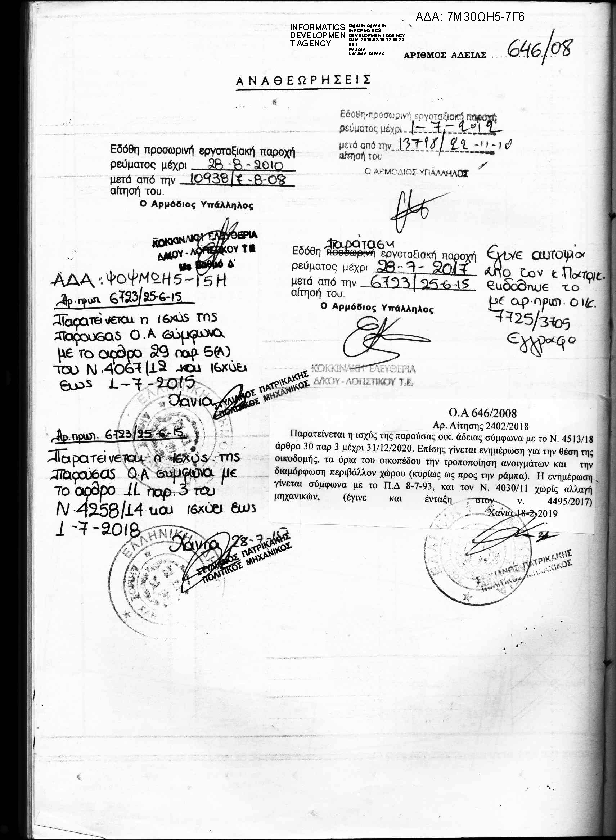 ΑΔΑ: 7Μ30ΩΗ5-7Γ6
INFORMATICS
DEVELOPMEN
T AGENCY
ΑΡΙΘΜΟΣ ΑΔΕΙΑΣ 646/08
ΑΝΑΘΕΩΡΗΣΕΙΣ
Εδόθη προσωρινή εργοταξιακή παροχή
ρεύματος μέχρι 28-8-2010
μετά από την 10938/7-8-08
αίτησή του.
Ο Αρμόδιος Υπάλληλος
ΚΟΚΚΙΝΑΚΟΥ ΕΛΕΥΘΕΡΙΑ
Δ/ΚΟΥ-ΛΟΓΙΣΤΙΚΟΥ Τ.Ε.
με βαθμό Δ'
Εδόθη προσωρινή εργοταξιακή παροχή
ρεύματος μέχρι 1-7-2012
μετά από την 13718/22-11-10
αίτησή του
Ο ΑΡΜΟΔΙΟΣ ΥΠΑΛΛΗΛΟΣ
παράταση
Εδόθη προσωρινή εργοταξιακή παροχή
ρεύματος μέχρι 28-7-2017
μετά από την 6723/25-6-15
αίτησή του.
Ο Αρμόδιος Υπάλληλος
ΚΟΚΚΙΝΑΚΗ ΕΛΕΥΘΕΡΙΑ
Δ/ΚΟΥ-ΛΟΓΙΣΤΙΚΟΥ Τ.Ε.
Εγινε αυτοψία
από τον κ Πατρικ.
με αρ.πρωτ. οικ.
7725/3705
έγγραφο
ΑΔΑ: ΨΟΨΜΩΗ5-15Η
Αρ.πρωτ. 6723/25-6-15
Παρατείνεται η ισχύς της
παρούσας Ο.Α σύμφωνα
με το αρθρο 29 παρ 5(Α)
του Ν.4067/12 και ισχύει
έως 1-7-2015
Χανιά
ΣΤΥΛΙΑΝΟΣ ΠΑΤΡΙΚΑΚΗΣ
ΠΟΛΙΤΙΚΟΣ ΜΗΧΑΝΙΚΟΣ
Αρ.πρωτ. 6723/25-6-15
Παρατείνεται η ισχύς της
παρούσας Ο.Α σύμφωνα με
το αρθρο 11 παρ.3 του
Ν 4258/14 και ισχύει έως
1-7-2018
Χανιά 28-7-
ΣΤΥΛΙΑΝΟΣ ΠΑΤΡΙΚΑΚΗΣ
ΠΟΛΙΤΙΚΟΣ ΜΗΧΑΝΙΚΟΣ
ΕΛΛΗΝΙΚΗ
Ο.Α 646/2008
Αρ. Αίτησης 2402/2018
Παρατείνεται η ισχύς της παρούσας οικ. άδειας σύμφωνα με το Ν. 4513/18
άρθρο 30 παρ 3 μέχρι 31/12/2020. Επίσης γίνεται ενημέρωση για την θέση της
οικοδομής, τα όρια του οικοπέδου την τροποποίηση ανοιγμάτων και την
διαμόρφωση περιβάλλον χώρου (κυρίως ως προς την ράμπα). Η ενημέρωση
γίνεται σύμφωνα με το Π.Δ 8-7-93, και τον Ν. 4030/11 χωρίς αλλαγή
μηχανικών, (έγινε και ένταξη στον ν. 4495/2017)
Χανιά 18-2-2019
ΣΤΥΛΙΑΝΟΣ ΠΑΤΡΙΚΑΚΗΣ
ΠΟΛΙΤΙΚΟΣ ΜΗΧΑΝΙΚΟΣ